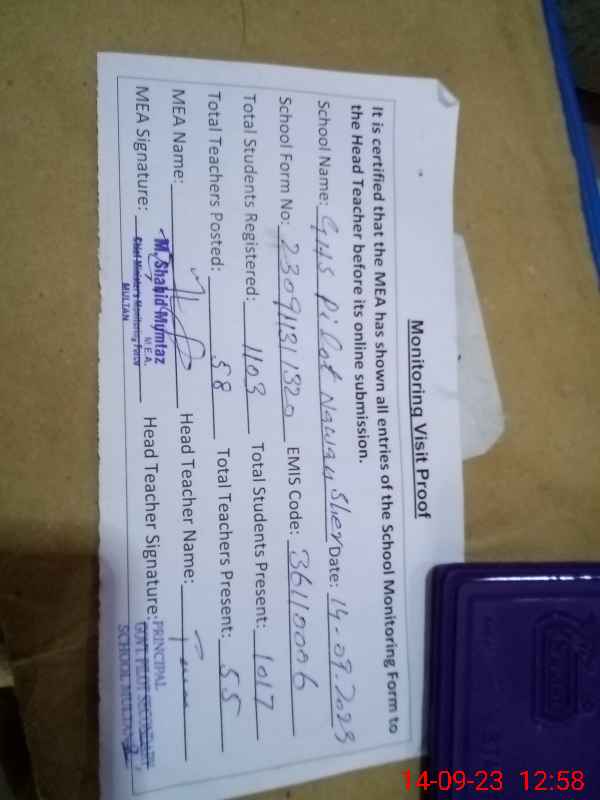 Monitoring Visit Proof
It is certified that the MEA has shown all entries of the School Monitoring Form to
the Head Teacher before its online submission.
School Name: GHS Pilot Nawan Sher Date: 14-09-2023
School Form No: 23091131320 EMIS Code: 36110006
Total Students Registered: 1103 Total Students Present: 1017
Total Teachers Posted: 58 Total Teachers Present: 55
MEA Name: Head Teacher Name:
MEA Signature: M. Shahid Mumtaz Head Teacher Signature: PRINCIPAL
M.E.A.
Chief Minister's Monitoring Force
MULTAN
GOVT. PILOT SECONDARY
SCHOOL MULTAN
14-09-23 12:58